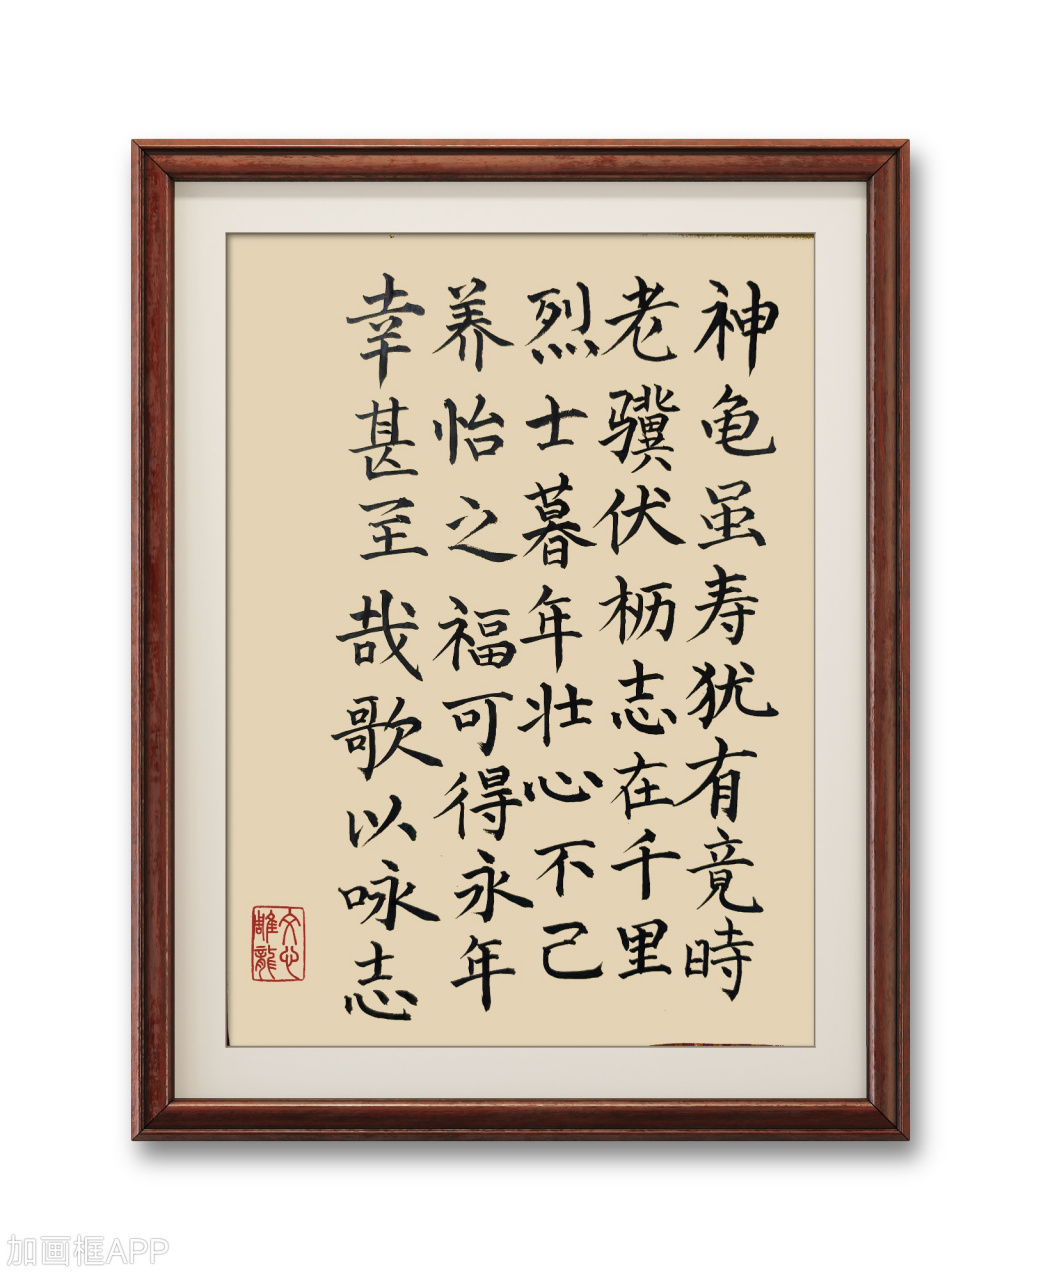 神龟虽寿犹有竟時
老骥伏枥志在千里
烈士暮年壮心不己
养怡之福可得永年
幸甚至哉歌以咏志
文心
雕龍
加画框APP